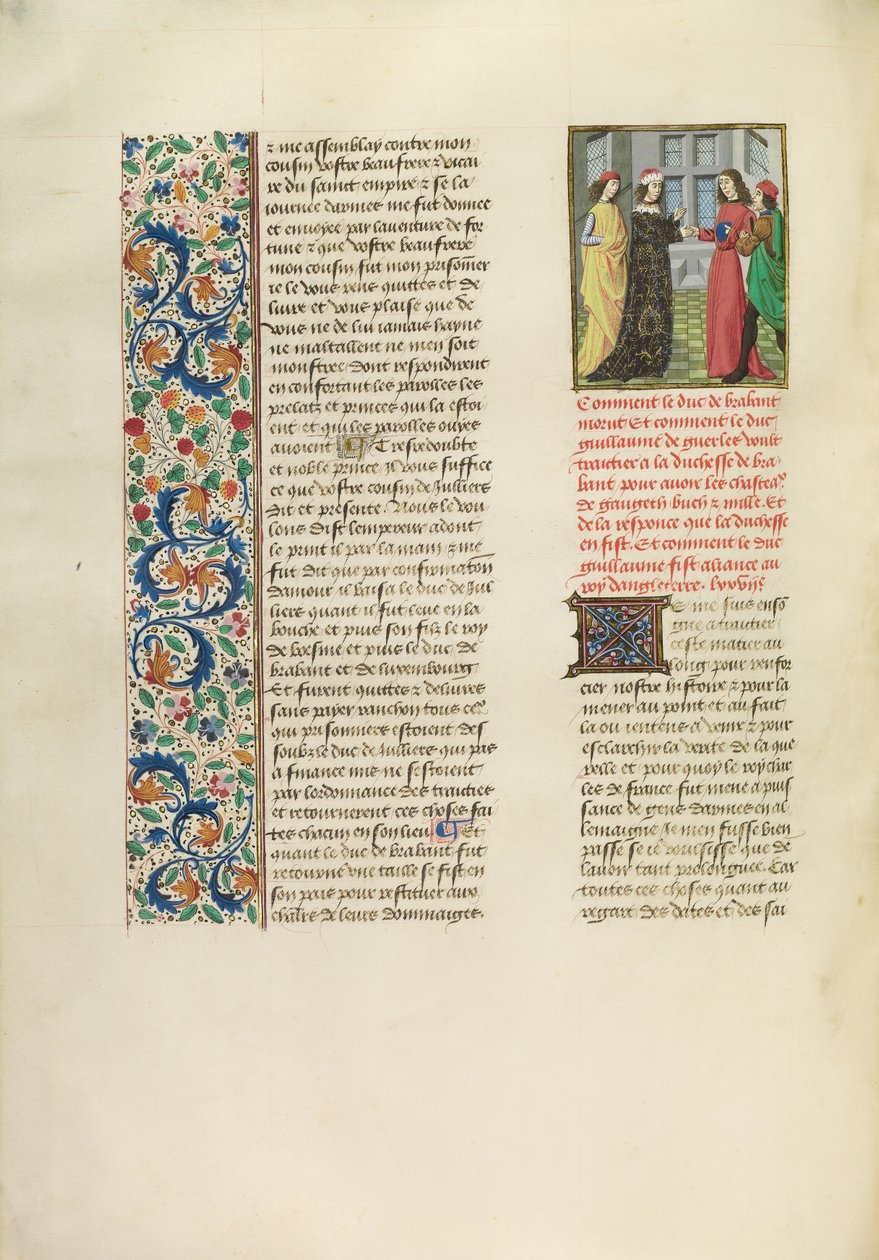 ⁊ me assemblay contre mon
cousin vostre beau frere ⁊ vicai
re du sainct empire ⁊ se la
iournee darmes me fut donnee
et enuoyee par lauenture de for
tune ⁊ que vostre beau frere
mon cousin fut mon prisonnier
ie le vous rens quittes et de
liure et vous plaise que de
vous ne de lui iamais hayne
ne maltallent ne men soit
monstree. Dont respondirent
en confortant les parolles les
prelatz et princes qui la estoi
ent et qui les parolles ouyes
auoient Tresredoubte
et noble prince, Il vous suffice
ce que vostre cousin de Julliers
dit et presente. Nous le vou
lons dist lempereur adont
le print il par la main, ⁊ me
fut dit que par confirmaton
damour il baisa le duc de Jul
liers quant il fut leue en la
bouche et puis son filz le roy
de boesme et puis le duc de
brabant et de luxembourg
Et furent quittes ⁊ deliures
sans payer ranchon tous ceulx
qui prisonniers estoient des
soubz le duc de Julliers qui pas
a finance mis ne sestoient
par lordonnance des traities
et retournerent ces choses fai
tes chacun en son lieu Et
quant le duc de brabant fut
retourne vne taille se fist en
son pais pour restituer aux
chlrs de leurs dommaiges.
Comment le duc de brabant
morut Et comment le duc
guillaume de guerles voult
traitier a la duchesse de bra
bant pour auoir les chasteaux
de gaugeth buch ⁊ mille. Et
de la responce que la duchesse
en fist. Et comment le duc
guillaume fist aliance au
roy dangleterre.
Je me suis enso
gne a traitier
ceste matier au
long pour renfor
cier nostre histoire ⁊ pour la
mener au point et au fait
la ou ientens a venir ⁊ pour
esclarchir la verite de la que
relle et pour quoy le roy char
les de france fut mene a puis
sance de gens darmes en al
lemaigne Je men fusse bien
passe se ie voulsisse que de
lauoir tant prolonguee. Car
toutes ces choses quant au
regart des dates et des sai